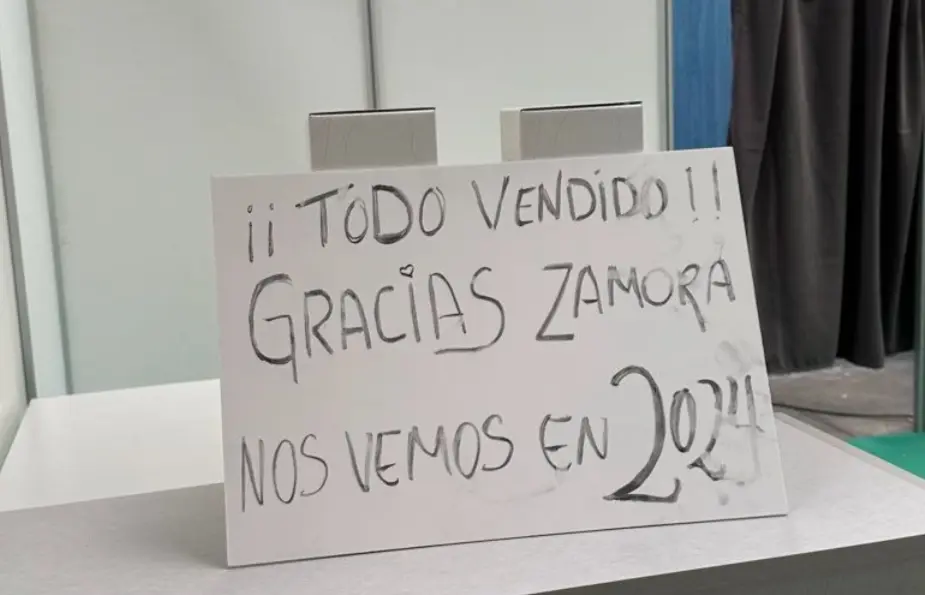 ¡¡ TODO VENDIDO !!
GRACIAS ZAMORA
NOS VEMOS EN 2024